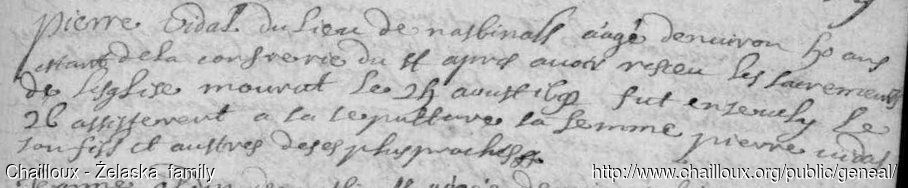 pierre Vidal du lieu de nasbinalls aagé denuiron 50 ans
estant de la confrerie du st apres auoir resceu les sacrements
de lesglise mourut le 25 aoust fut enseuely le
26 assisterent a la sepulture sa femme pierre vidal
son fils et austres de ses plus proches
Chailloux - Żelaska family
http://www.chailloux.org/public/geneal/